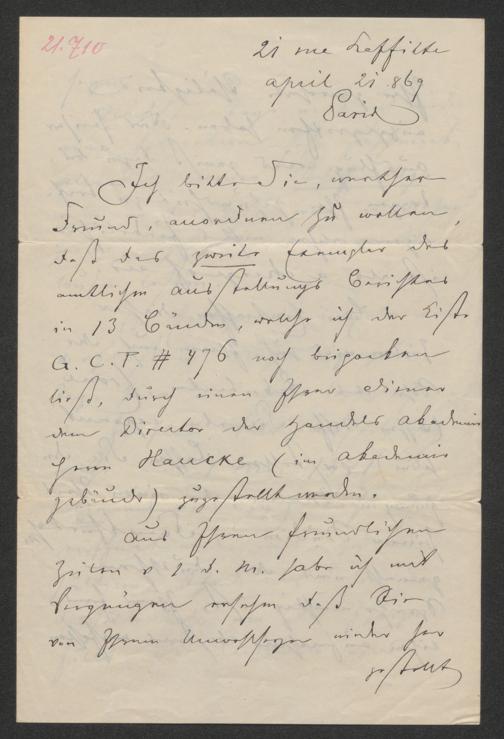 21.710
21 rue Laffitte
april 21 869
Paris
Ich bitte Sie, werther
Freund, anordnen zu wollen,
daß das zweite Exemplar des
amtlichen Ausstellungs Berichtes
in 13 Bänden, welche ich der Kiste
G. C. P. # 476 noch beipacken
ließ, durch einen Ihrer Diener
dem Director der Handels Akademie
Herrn Haucke (im Akademie
gebäude) zugestellt werden.
Aus Ihren freundlichen
Zeilen v 1 d. M. habe ich mit
Vergnügen ersehen daß Sie
von Ihrem Unwohlseyn wieder her
gestellt